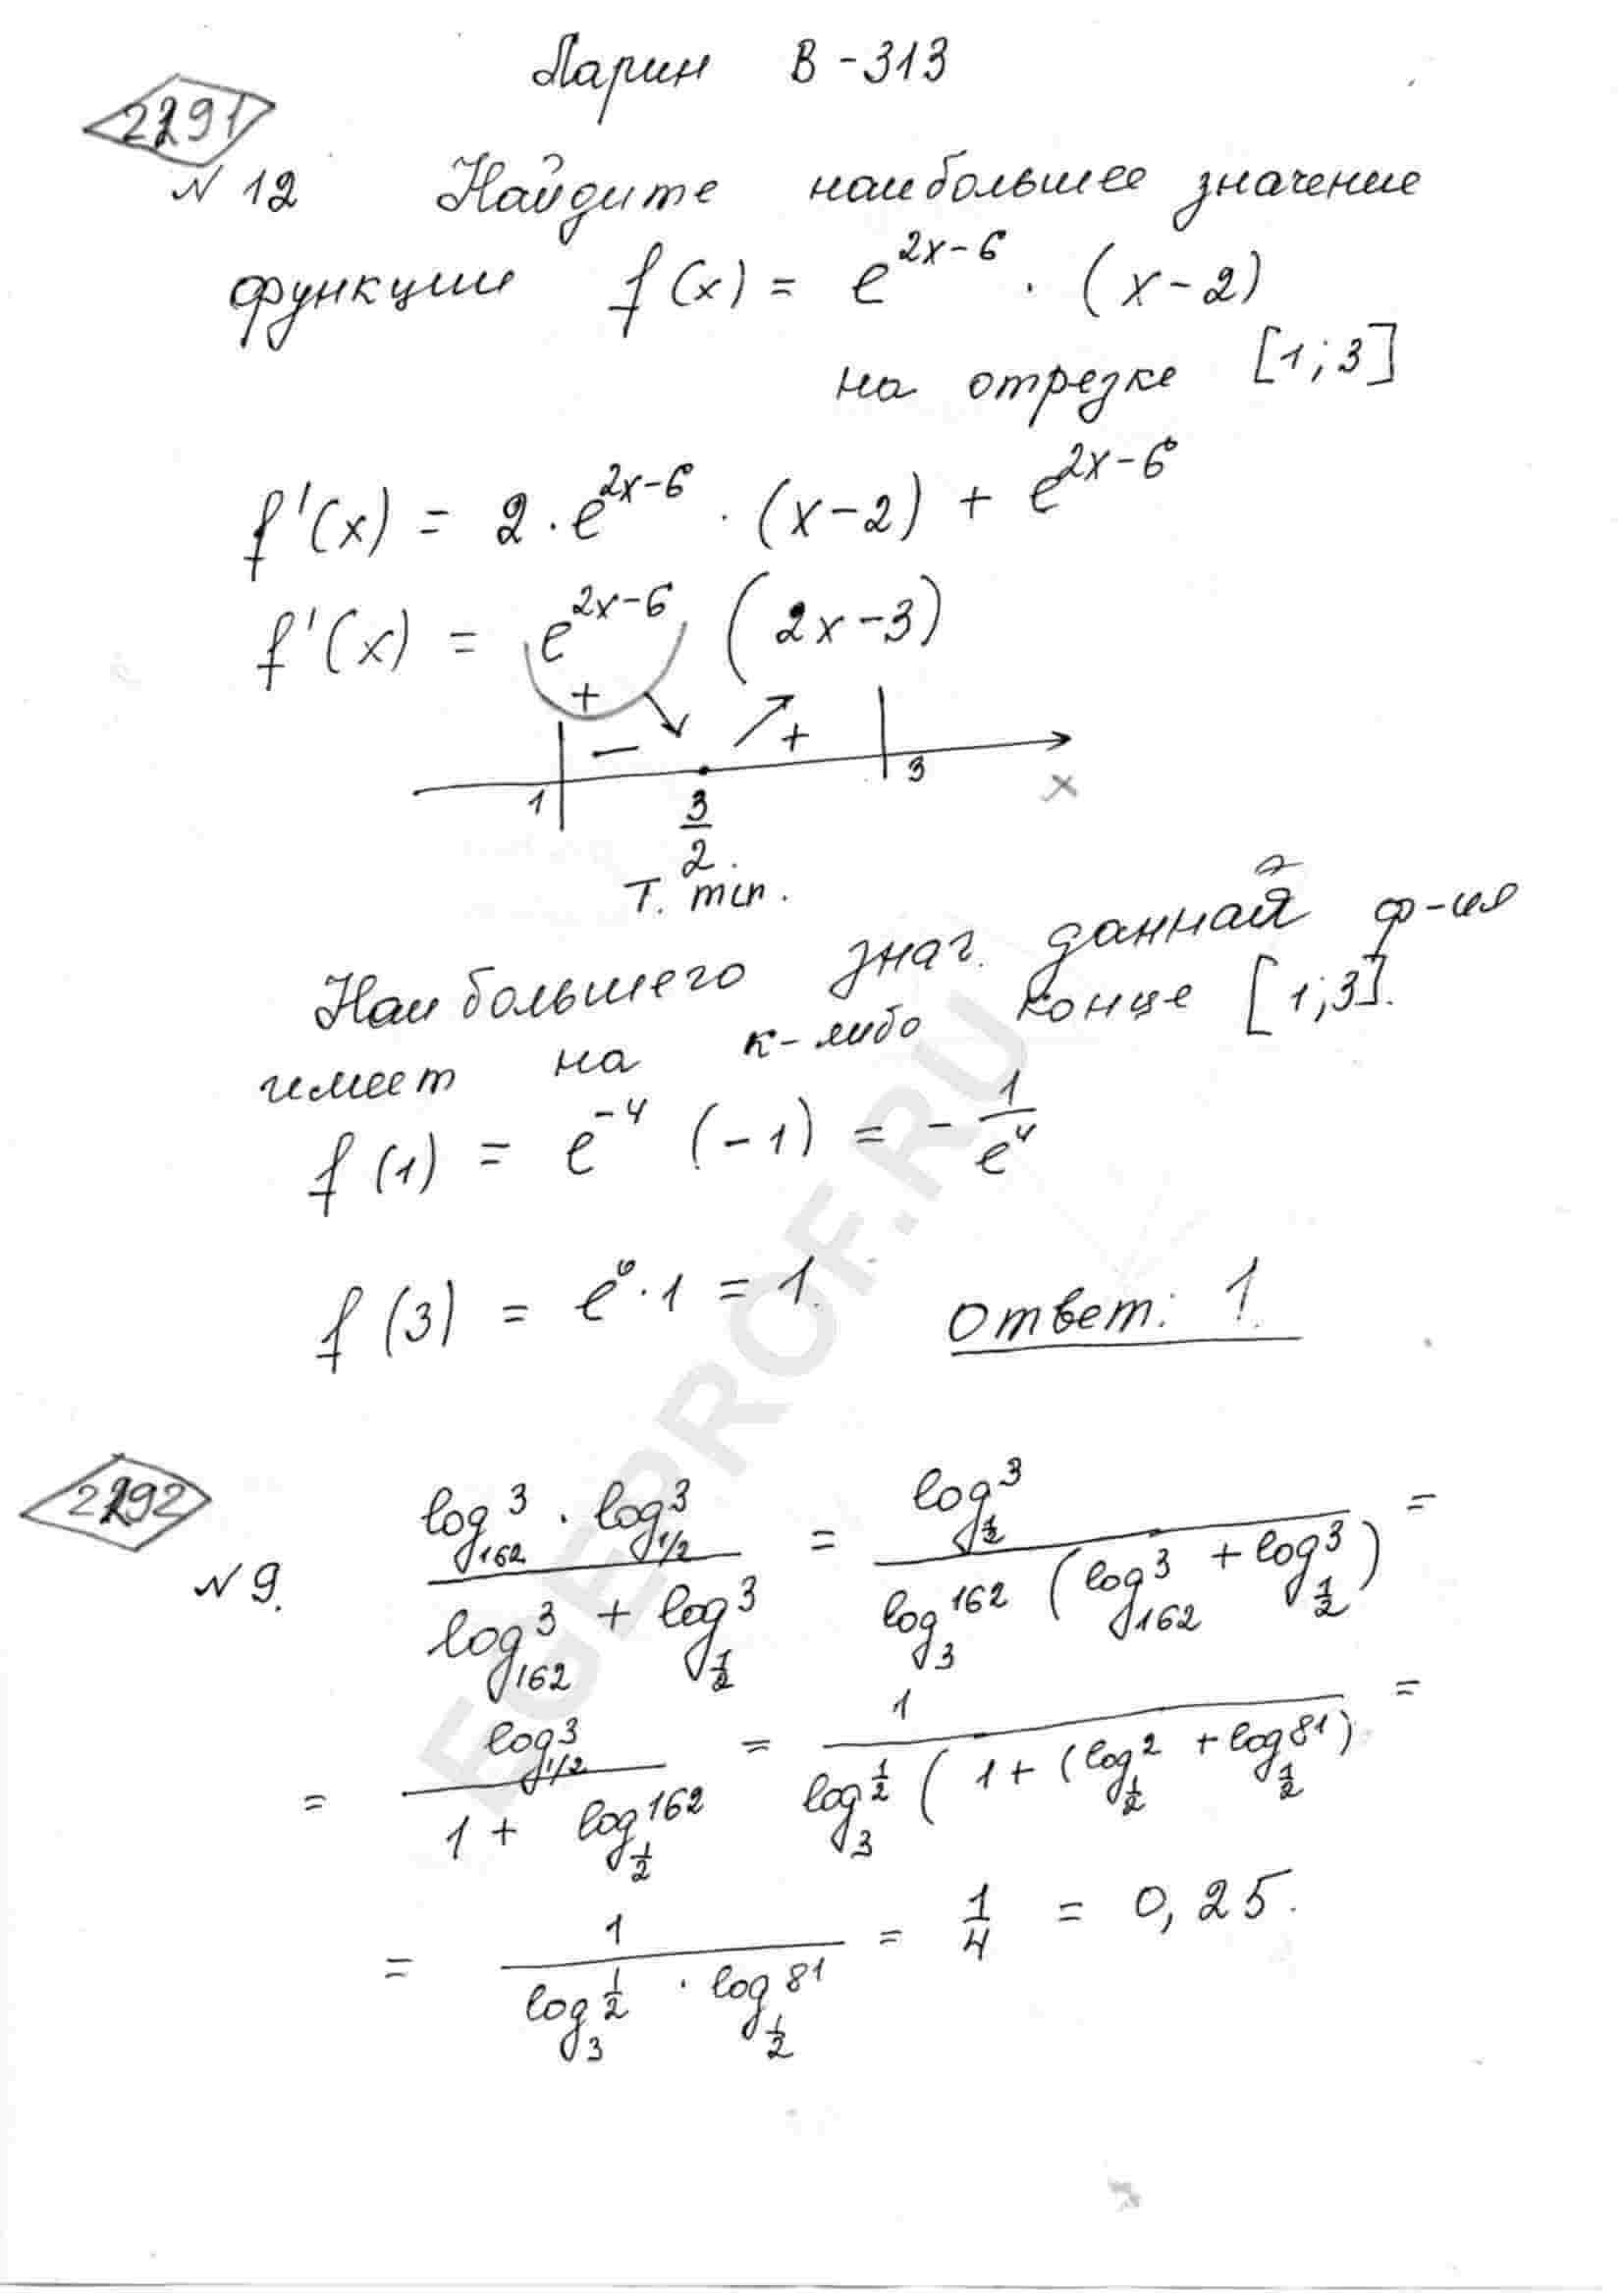 Ларин В-313
2291
N 12 Найдите наибольшее значение
функции f(x) = e^{2x-6} · (x-2)
на отрезке [1;3]
f'(x) = 2·e^{2x-6} · (x-2) + e^{2x-6}
f'(x) = e^{2x-6} (2x-3)
+
− +
1 3/2 3 x
Т. min.
Наибольшего знач. данная ф-ия
имеет на к-либо конце [1;3].
f(1) = e^{-4} (-1) = - 1/e^4
f(3) = e^0·1 = 1.
Ответ: 1.
2292
N 9. (log_{162} 3 · log_{1/2} 3)/(log_{162} 3 + log_{1/2} 3) = (log_{1/2} 3)/(log_3 162 (log_{162} 3 + log_{1/2} 3)) =
= (log_{1/2} 3)/(1 + log_{1/2} 162) = 1/(log_3 1/2 (1 + (log_{1/2} 2 + log_{1/2} 81)) =
= 1/(log_3 1/2 · log_{1/2} 81) = 1/4 = 0,25.
EGEPROF.RU